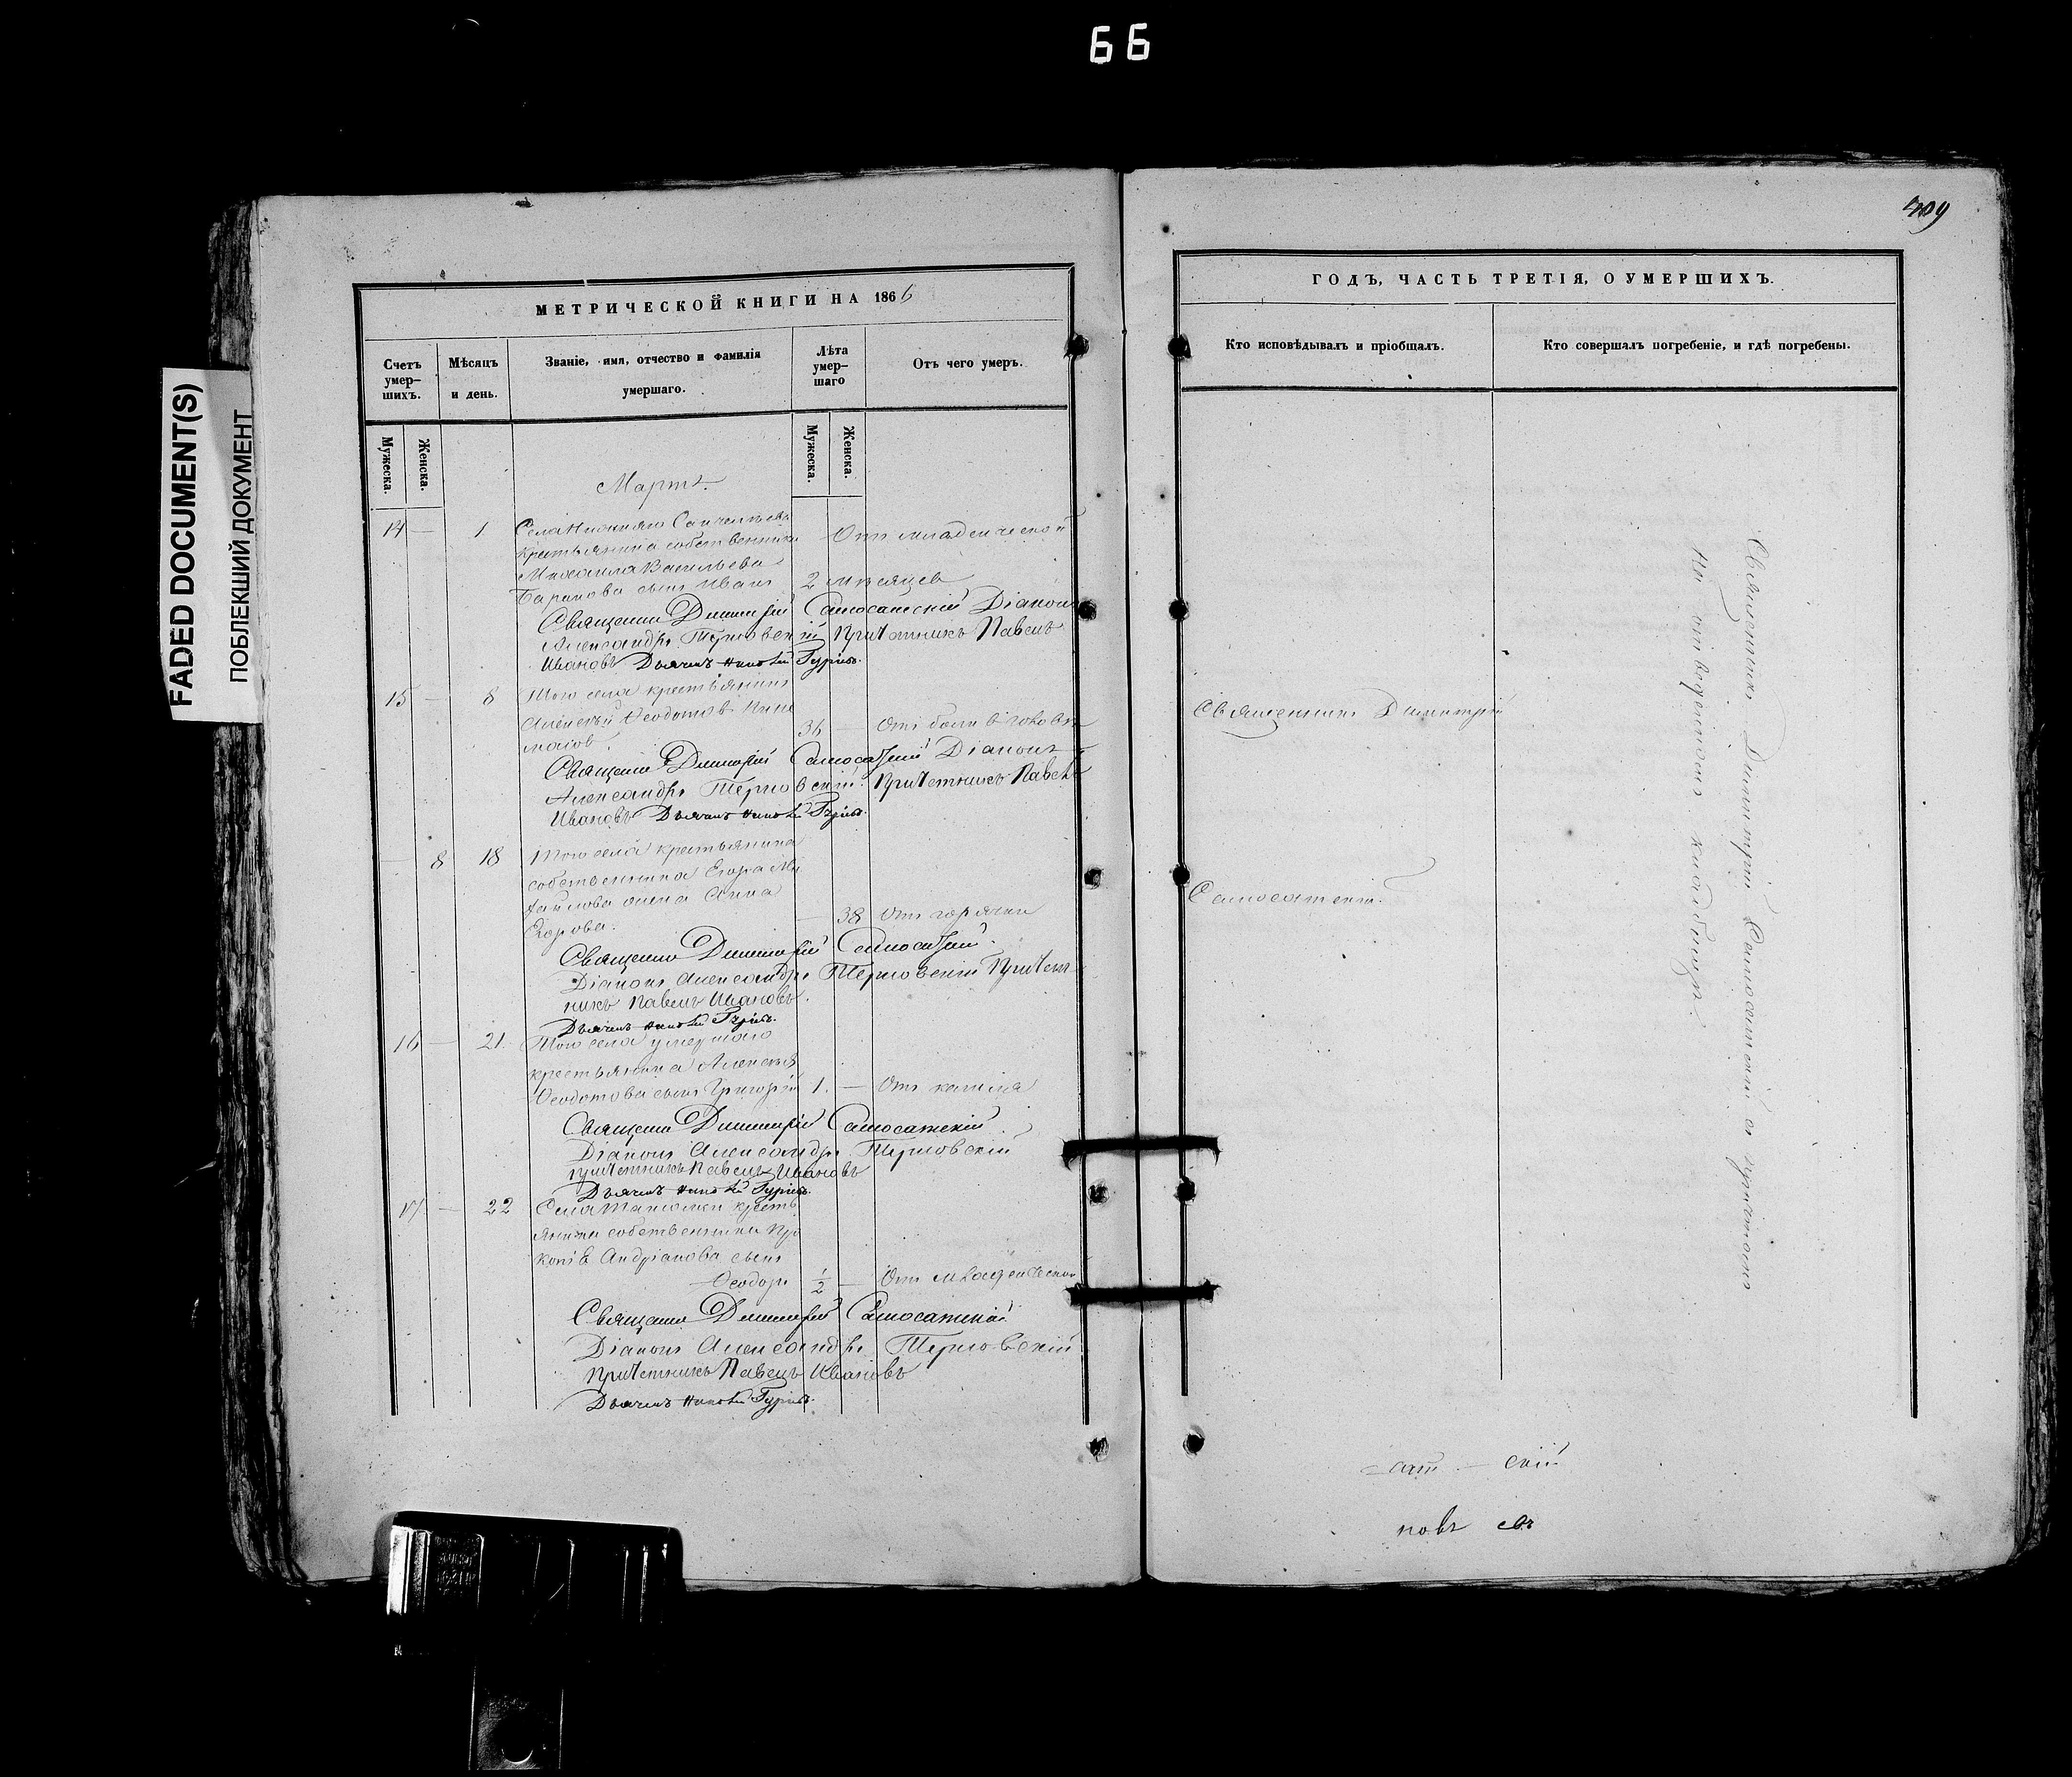 66
FADED DOCUMENT(S)
ПОБЛЕКШИЙ ДОКУМЕНТ
МЕТРИЧЕСКОЙ КНИГИ НА 1866
Счетъ умер-шихъ.
Мѣсяцъ и день.
Званіе, имя, отчество и фамилія умершаго.
Лѣта умер-шаго
Отъ чего умеръ.
Мужеска.
Женска.
Мужеска.
Женска.
Мартъ.
14 — 1 Села
крестьянина собственника
Михаила Васильева
Баранова сынъ Иванъ 2 мѣсяцев
Отъ младенческой
Священникъ Димитрій Самосатскій Діаконъ
Александръ Терновскій Причетникъ Павелъ
Ивановъ Дьячекъ Гурьевъ.
15 — 8 Того села крестьянинъ
Алексѣй Ѳеодотов
36 — Отъ боли в голове
Священникъ Димитрій Самосатскій Діаконъ
Александръ Терновскій. Причетникъ Павелъ
Ивановъ Дьячекъ Гурьевъ.
— 8 18 Того села крестьянина
собственника Егора Ми
хайлова жена Анна
Егорова.
— 38 Отъ горячки
Священникъ Димитрій Самосатскій.
Діаконъ Александръ Терновскій Причет
никъ Павелъ Ивановъ.
Дьячекъ Гурьевъ.
16 — 21. Того села умершаго
крестьянина Алексѣя
Ѳеодотова сынъ Григорій 1. — Отъ кашля
Священникъ Димитрій Самосатскій.
Діаконъ Александръ Терновскій
причетникъ Павелъ Ивановъ
Дьячекъ Гурьевъ.
17 — 22 Села кресть
янина собственника Про
копія Андріанова сынъ
Ѳеодоръ 1/2 — Отъ младенческой
Священникъ Димитрій Самосатскій
Діаконъ Александръ Терновскій
Причетникъ Павелъ Ивановъ
Дьячекъ Гурьевъ.
409
ГОДЪ, ЧАСТЬ ТРЕТІЯ, О УМЕРШИХЪ.
Кто исповѣдывалъ и пріобщалъ.
Кто совершалъ погребеніе, и гдѣ погребены.
Священникъ Димитрій
Самосатскій.
Священникъ Димитрій Самосатскій с причтомъ
На отведенномъ кладбищѣ.
— сат — скій
новъ съ